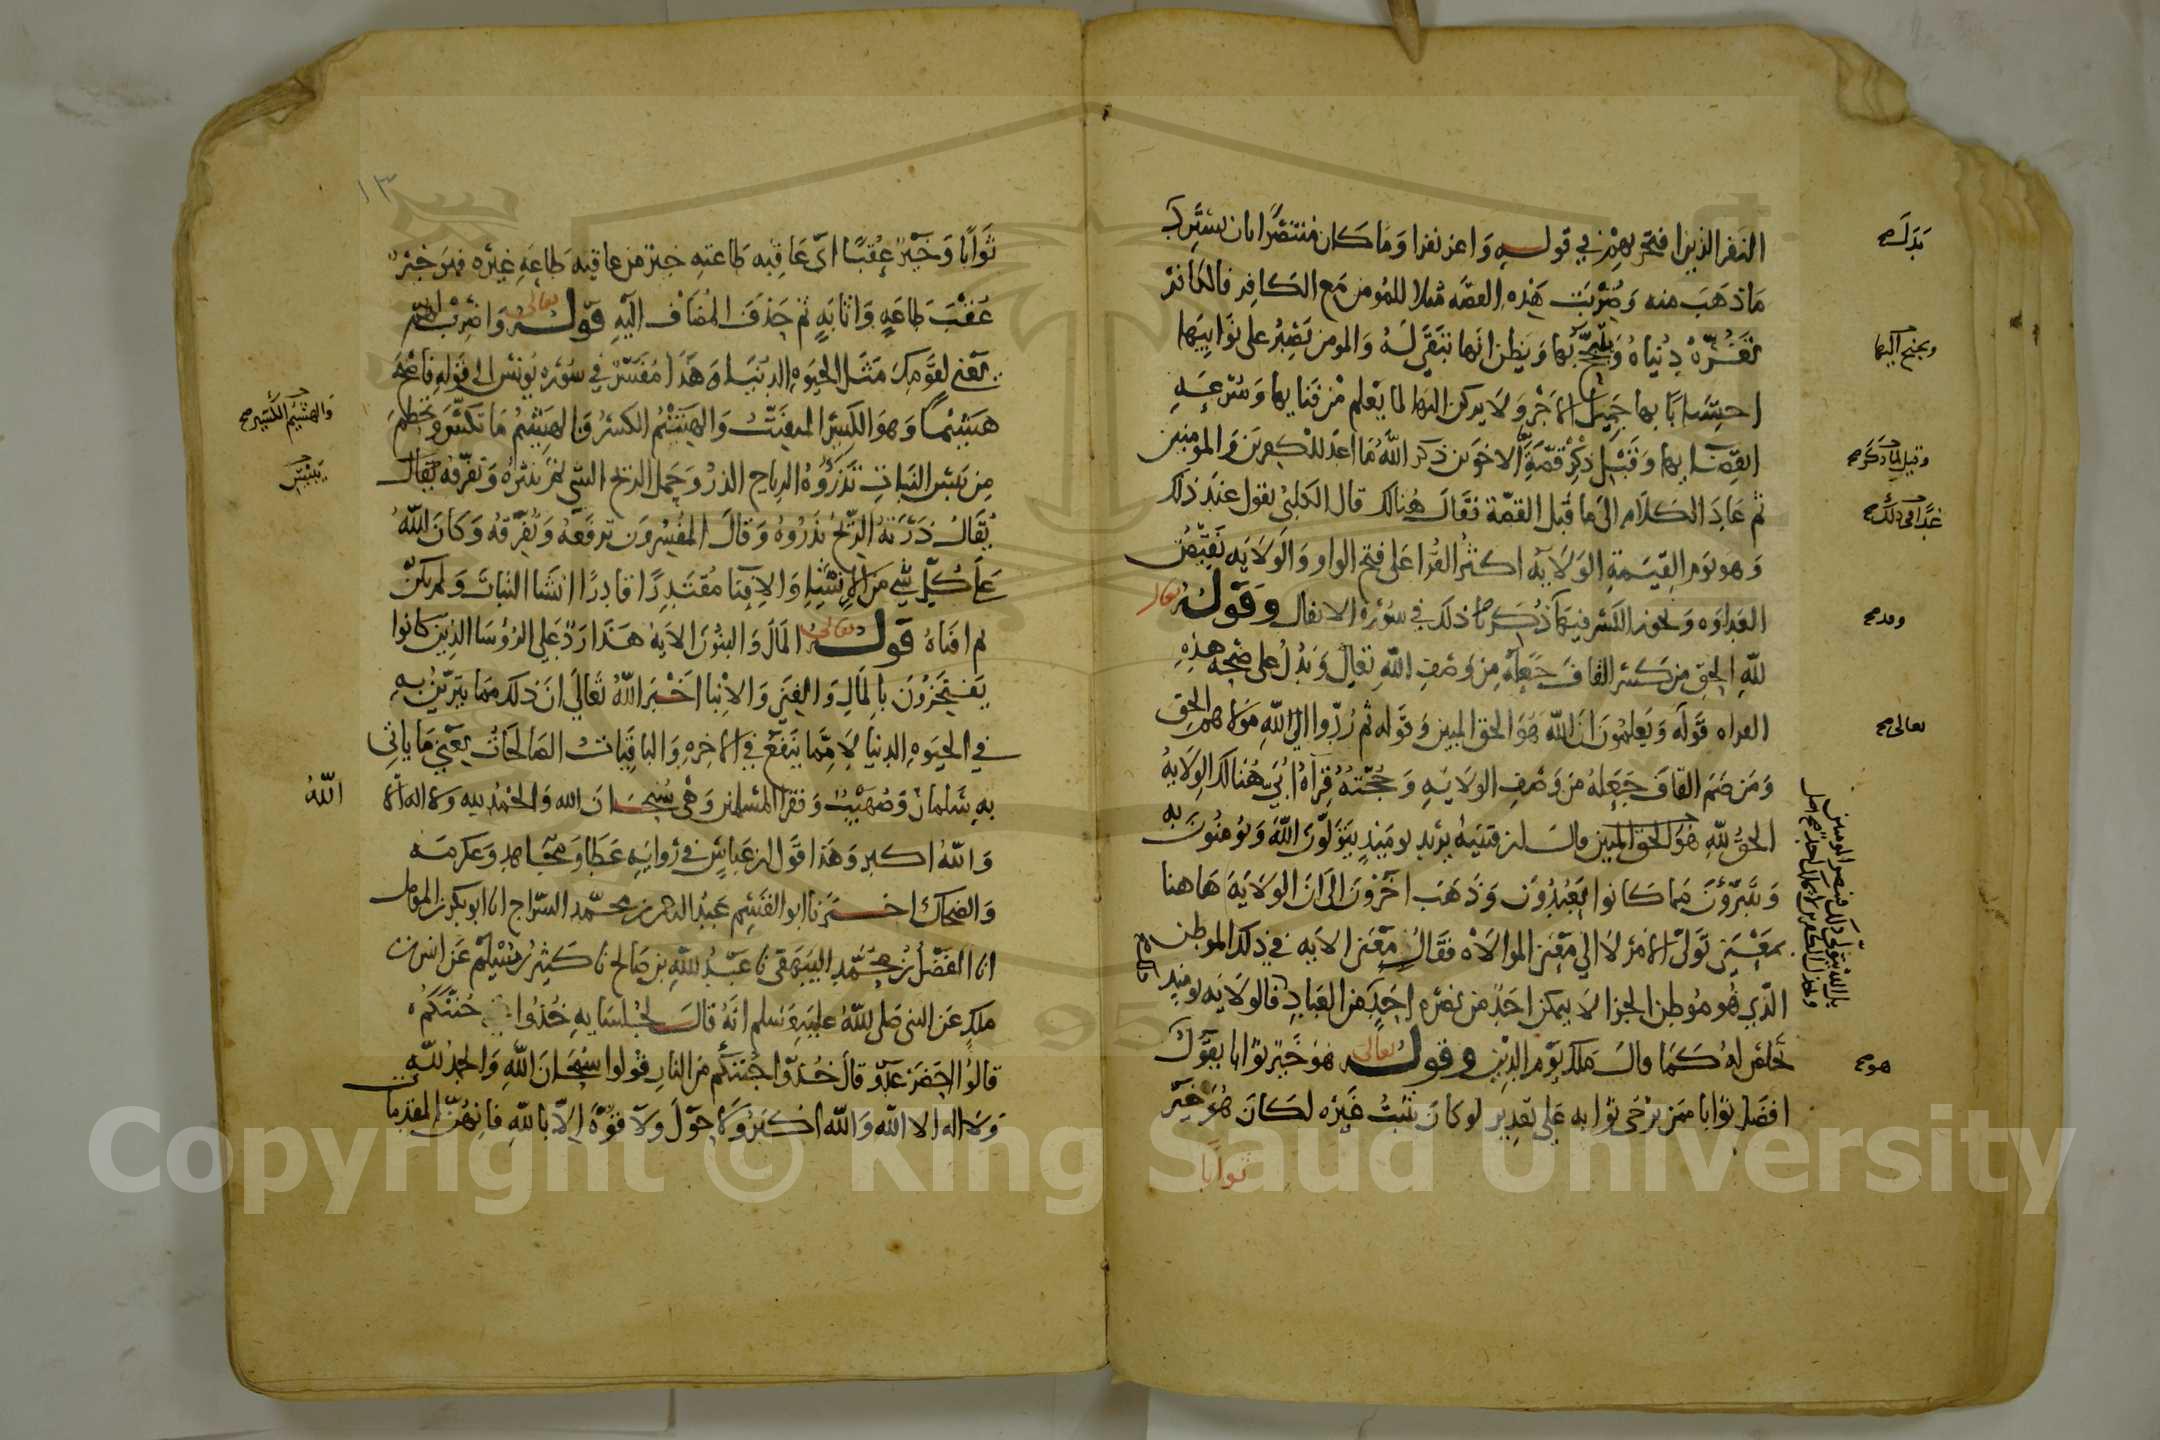 النفر الذين افتخر بهم في قوله واعز نفرا وما كان منتصرا بان يسترد
ما ذهب منه وضربت هذه القصه مثلا للمومن مع الكافر فالكافر
تغره دنياه ويتبجح بها ويظن انها تبقى له والمومن يصبر على نوايبها
احتسابا بها جميل الاجر ولا يركن اليها لما يعلم من فنايها وسرعة
انقضايها وقبل ذكر قصة الاخوين ذكر الله ما اعد للكفرين والمومنين
ثم عاد الكلام الى ما قبل القصة فقال هنالك قال الكلبي يقول عند ذلك
وهو يوم القيمة الولاية اكثر القرا على فتح الواو والولاية نقيض
العداوه ويجوز الكسر فيها ذكرنا ذلك في سورة الانفال وقوله تعالى
لله الحق من كسر القاف جعله من وصف الله تعالى ويدل على صحة هذه
القراه قوله ويعلمون ان الله هو الحق المبين وقوله ثم ردوا الى الله مولاهم الحق
ومن ضم القاف جعله من وصف الولاية وحجته قراة ابي هنالك الولاية
الحق لله هو الحق المبين قال ابن قتيبة يريد يوميذ يتولون الله ويومنون به
ويتبرؤن مما كانوا يعبدون وذهب اخرون الى ان الولاية هاهنا
بمعنى تولى الامر لا الى معنى الموالاه فقال معنى الايه في ذلك الموطن
الذي هو موطن الجزا لا يمكن احد من نصره احد من العباد فالولاية يوميذ
تخلص له كما قال ملك يوم الدين وقوله تعالى هو خير ثوابا يقول
افضل ثوابا ممن يرجى ثوابه على تقدير لو كان يثبت غيره لكان هو خير
ثوابا
بدله صح
ويجنح اليها
وقبل لما ذكر صح
تعالى صح
هو صح
١٣
ثوابا وخير عقبا اى عاقبة طاعته خير من عاقبة طاعة غيره فهو خير
عقب طاعه واثابه ثم حذف المضاف اليه قوله تعالى واضرب لهم
يعني لقومك مثل الحيوه الدنيا وهذا مفسر في سورة يونس الى قوله فاصبح
هشيما وهو الكسير المتفتت والهشم الكسر والهشيم ما تكسر وتحطم
من يبس النبات تذروه الرياح الذرو حمل الريح الشي ثم نثره وتفرقه يقال
يقال ذرته الريح تذروه وقال المفسرون ترفعه وتفرقه وكان الله
على كل شي من الانشا والافنا مقتدرا قادرا انشا النبات ولم يكن
ثم افناه قوله تعالى المال والبنون الاية هذا رد على الرؤسا الذين كانوا
يفتخرون بالمال والغنى والابنا اخبر الله تعالى ان ذلك مما يتزين به
في الحيوه الدنيا لا مما ينفع في الاخره والباقيات الصالحات يعني ما ياتي
به سلمان وصهيب وفقرا المسلمين وهي سبحان الله والحمد لله ولا اله الا
والله اكبر وهذا قول ابن عباس في رواية عطا ومجاهد وعكرمة
والضحاك اخبرنا ابو القسم عبد الرحمن بن محمد السراج انا ابو بكر بن المومل
انا الفضل بن محمد البيهقي نا عبد الله بن صالح نا كثير بن سليم عن انس بن
ملك عن النبي صلى الله عليه وسلم انه قال لجلسايه خذوا جنتكم
قالوا احضر عدو قال خذوا جنتكم من النار قولوا سبحان الله والحمد لله
ولا اله الا الله والله اكبر ولا حول ولا قوة الا بالله فانهن المقدمات
والهشيم الكسير صح
الله
Copyright © King Saud University